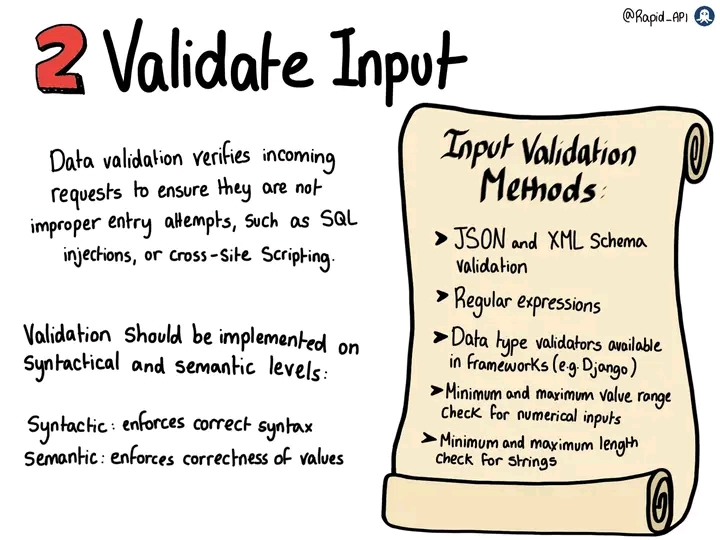 @Rapid_API
2 Validate Input
Data validation verifies incoming
requests to ensure they are not
improper entry attempts, such as SQL
injections, or cross-site Scripting.
Validation should be implemented on
syntactical and semantic levels:
Syntactic: enforces correct syntax
Semantic: enforces correctness of values
Input Validation
Methods:
➤ JSON and XML Schema
validation
➤ Regular expressions
➤ Data type validators available
in frameworks (e.g. Django)
➤ Minimum and maximum value range
check for numerical inputs
➤ Minimum and maximum length
check for strings